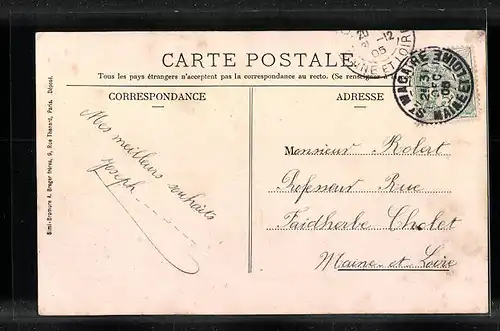 20 -12
05
MAINE ET LOIRE
CARTE POSTALE
Tous les pays étrangers n'acceptent pas la correspondance au recto. (Se renseigner à
CORRESPONDANCE
ADRESSE
ST MACAIRE
MAINE ET LOIRE
31
DEC
05
Mes meilleurs souhaits
Joseph
Monsieur Robert
Professeur Rue
Faidherbe Cholet
Maine-et-Loire
Simi-Bromure A. Breger frères, 9, Rue Thenard, Paris. Déposé.